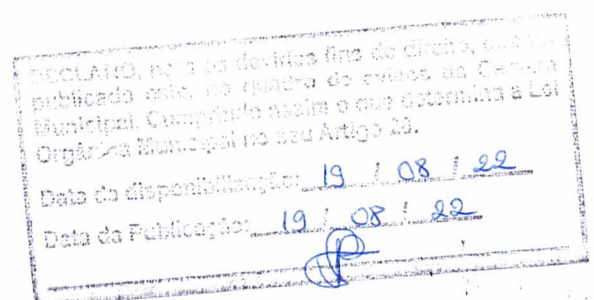 DECLARO, para os devidos fins de direito, que foi
publicado este, no quadro de avisos da Câmara
Municipal. Cumprindo assim o que determina a Lei
Orgânica Municipal no seu Artigo 29.
Data da disponibilização: 19 / 08 / 22
Data da Publicação: 19 / 08 / 22